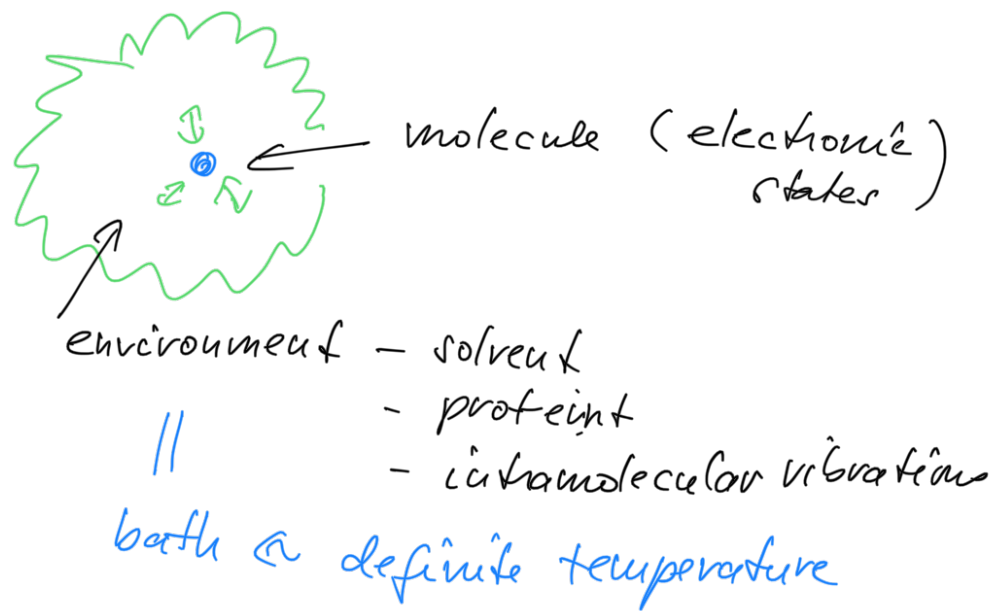 molecule (electronic)
states
environment - solvent
- proteint
- intramolecular vibrations
||
bath @ definite temperature